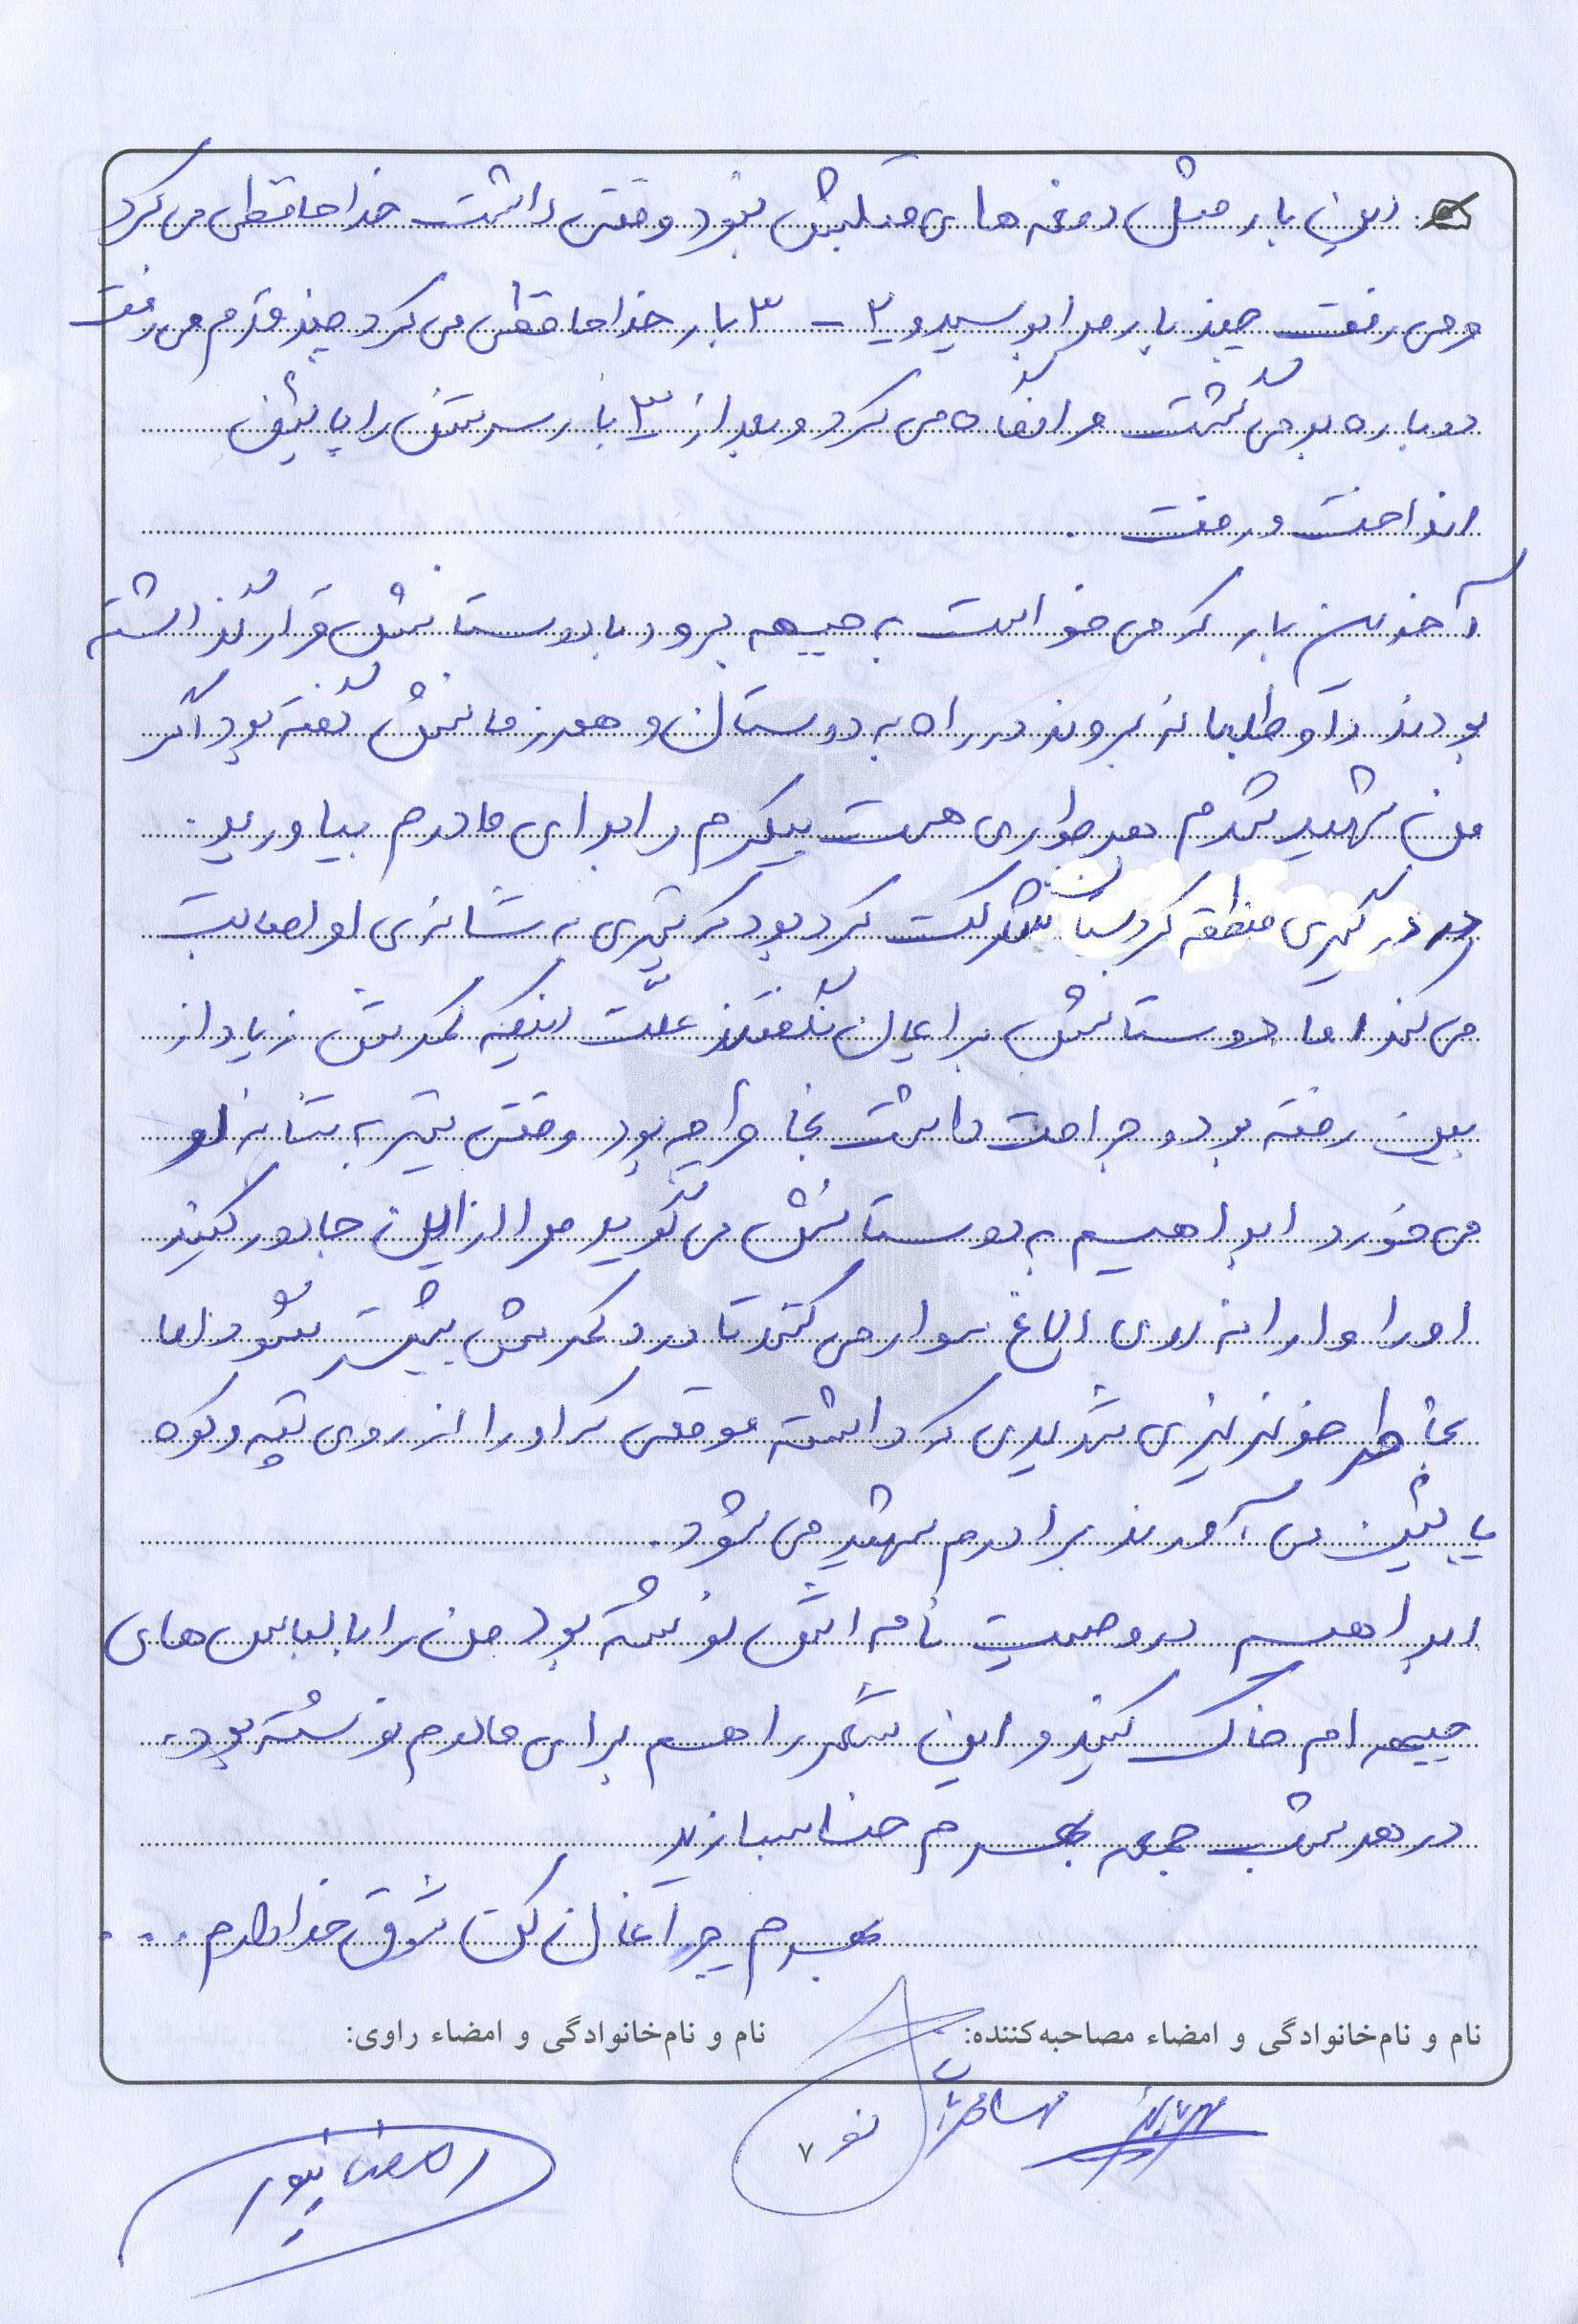 این بار مثل دفعه های قبلیش نبود وقتی داشت خداحافظی می کرد
و می رفت چند بار مرا بوسید و ۲ - ۳ بار خداحافظی می کرد چند قدم می رفت
دوباره برمی گشت مرا نگاه می کرد و بعد از ۳ بار سرش را پائین
انداخت و رفت .
آخرین بار که می خواست به جبهه برود با دوستانش قرار گذاشته
بودند داوطلبانه بروند در راه به دوستان و همرزمانش گفته بود اگر
من شهید شدم هر طوری هست پیکرم را برای مادرم بیاورید.
در درگیری منطقه کردستان شرکت کرد بود که تیری به شانه ی او اصابت
می کند اما دوستانش برایمان نگفتند علّت اینکه کمرش زیاد از
بین رفته بود و جراحت داشت بخاطر چه بود وقتی تیر به شانه او
می خورد ابراهیم به دوستانش می گوید مرا از این جا دور کنید
او را وارانه روی الاغ سوار می کنند تا درد کمرش بیشتر نشود اما
بخاطر خونریزی شدیدی که داشته موقعی که او را از روی تپه و کوه
پایین می آورند برادرم شهید می شود.
ابراهیم در وصیت نامه اش نوشته بود من را با لباس های
جبهه ام خاک کنید و این شعر را هم برای مادرم نوشته بود.
در هر شب جمعه بقبرم حنا بسازید
بقبرم چراغان کن شوق خدا دارم . . .
نام و نام‌خانوادگی و امضاء مصاحبه‌کننده:
نام و نام‌خانوادگی و امضاء راوی:
۷
رمضانپور